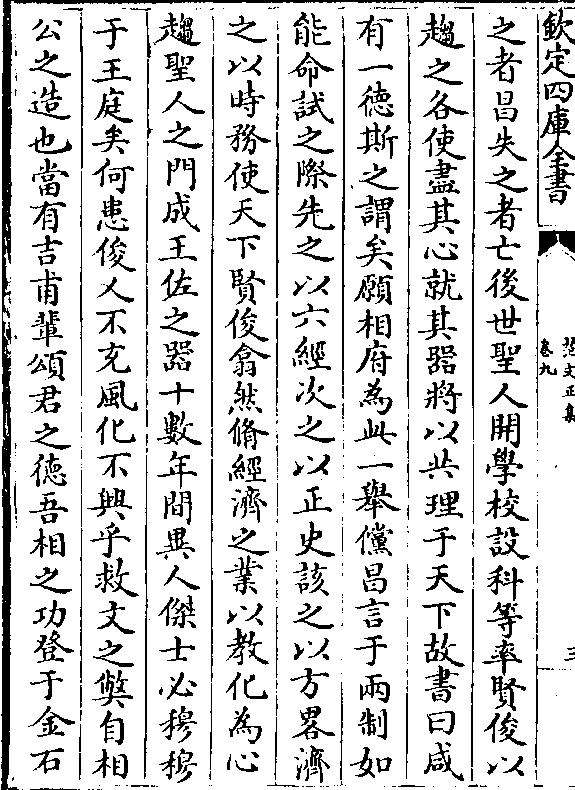 欽定四庫全書
范文正集
卷九
三
之者昌失之者亡後世聖人開學校設科等率賢俊以
趨之各使盡其心就其器將以共理于天下故書曰咸
有一德斯之謂矣願相府為此一舉儻昌言于兩制如
能命試之際先之以六經次之以正史該之以方畧濟
之以時務使天下賢俊翕然脩經濟之業以教化為心
趨聖人之門成王佐之器十數年間異人傑士必穆穆
于王庭矣何患俊乂不充風化不興乎救文之弊自相
公之造也當有吉甫輩頌君之德吾相之功登于金石